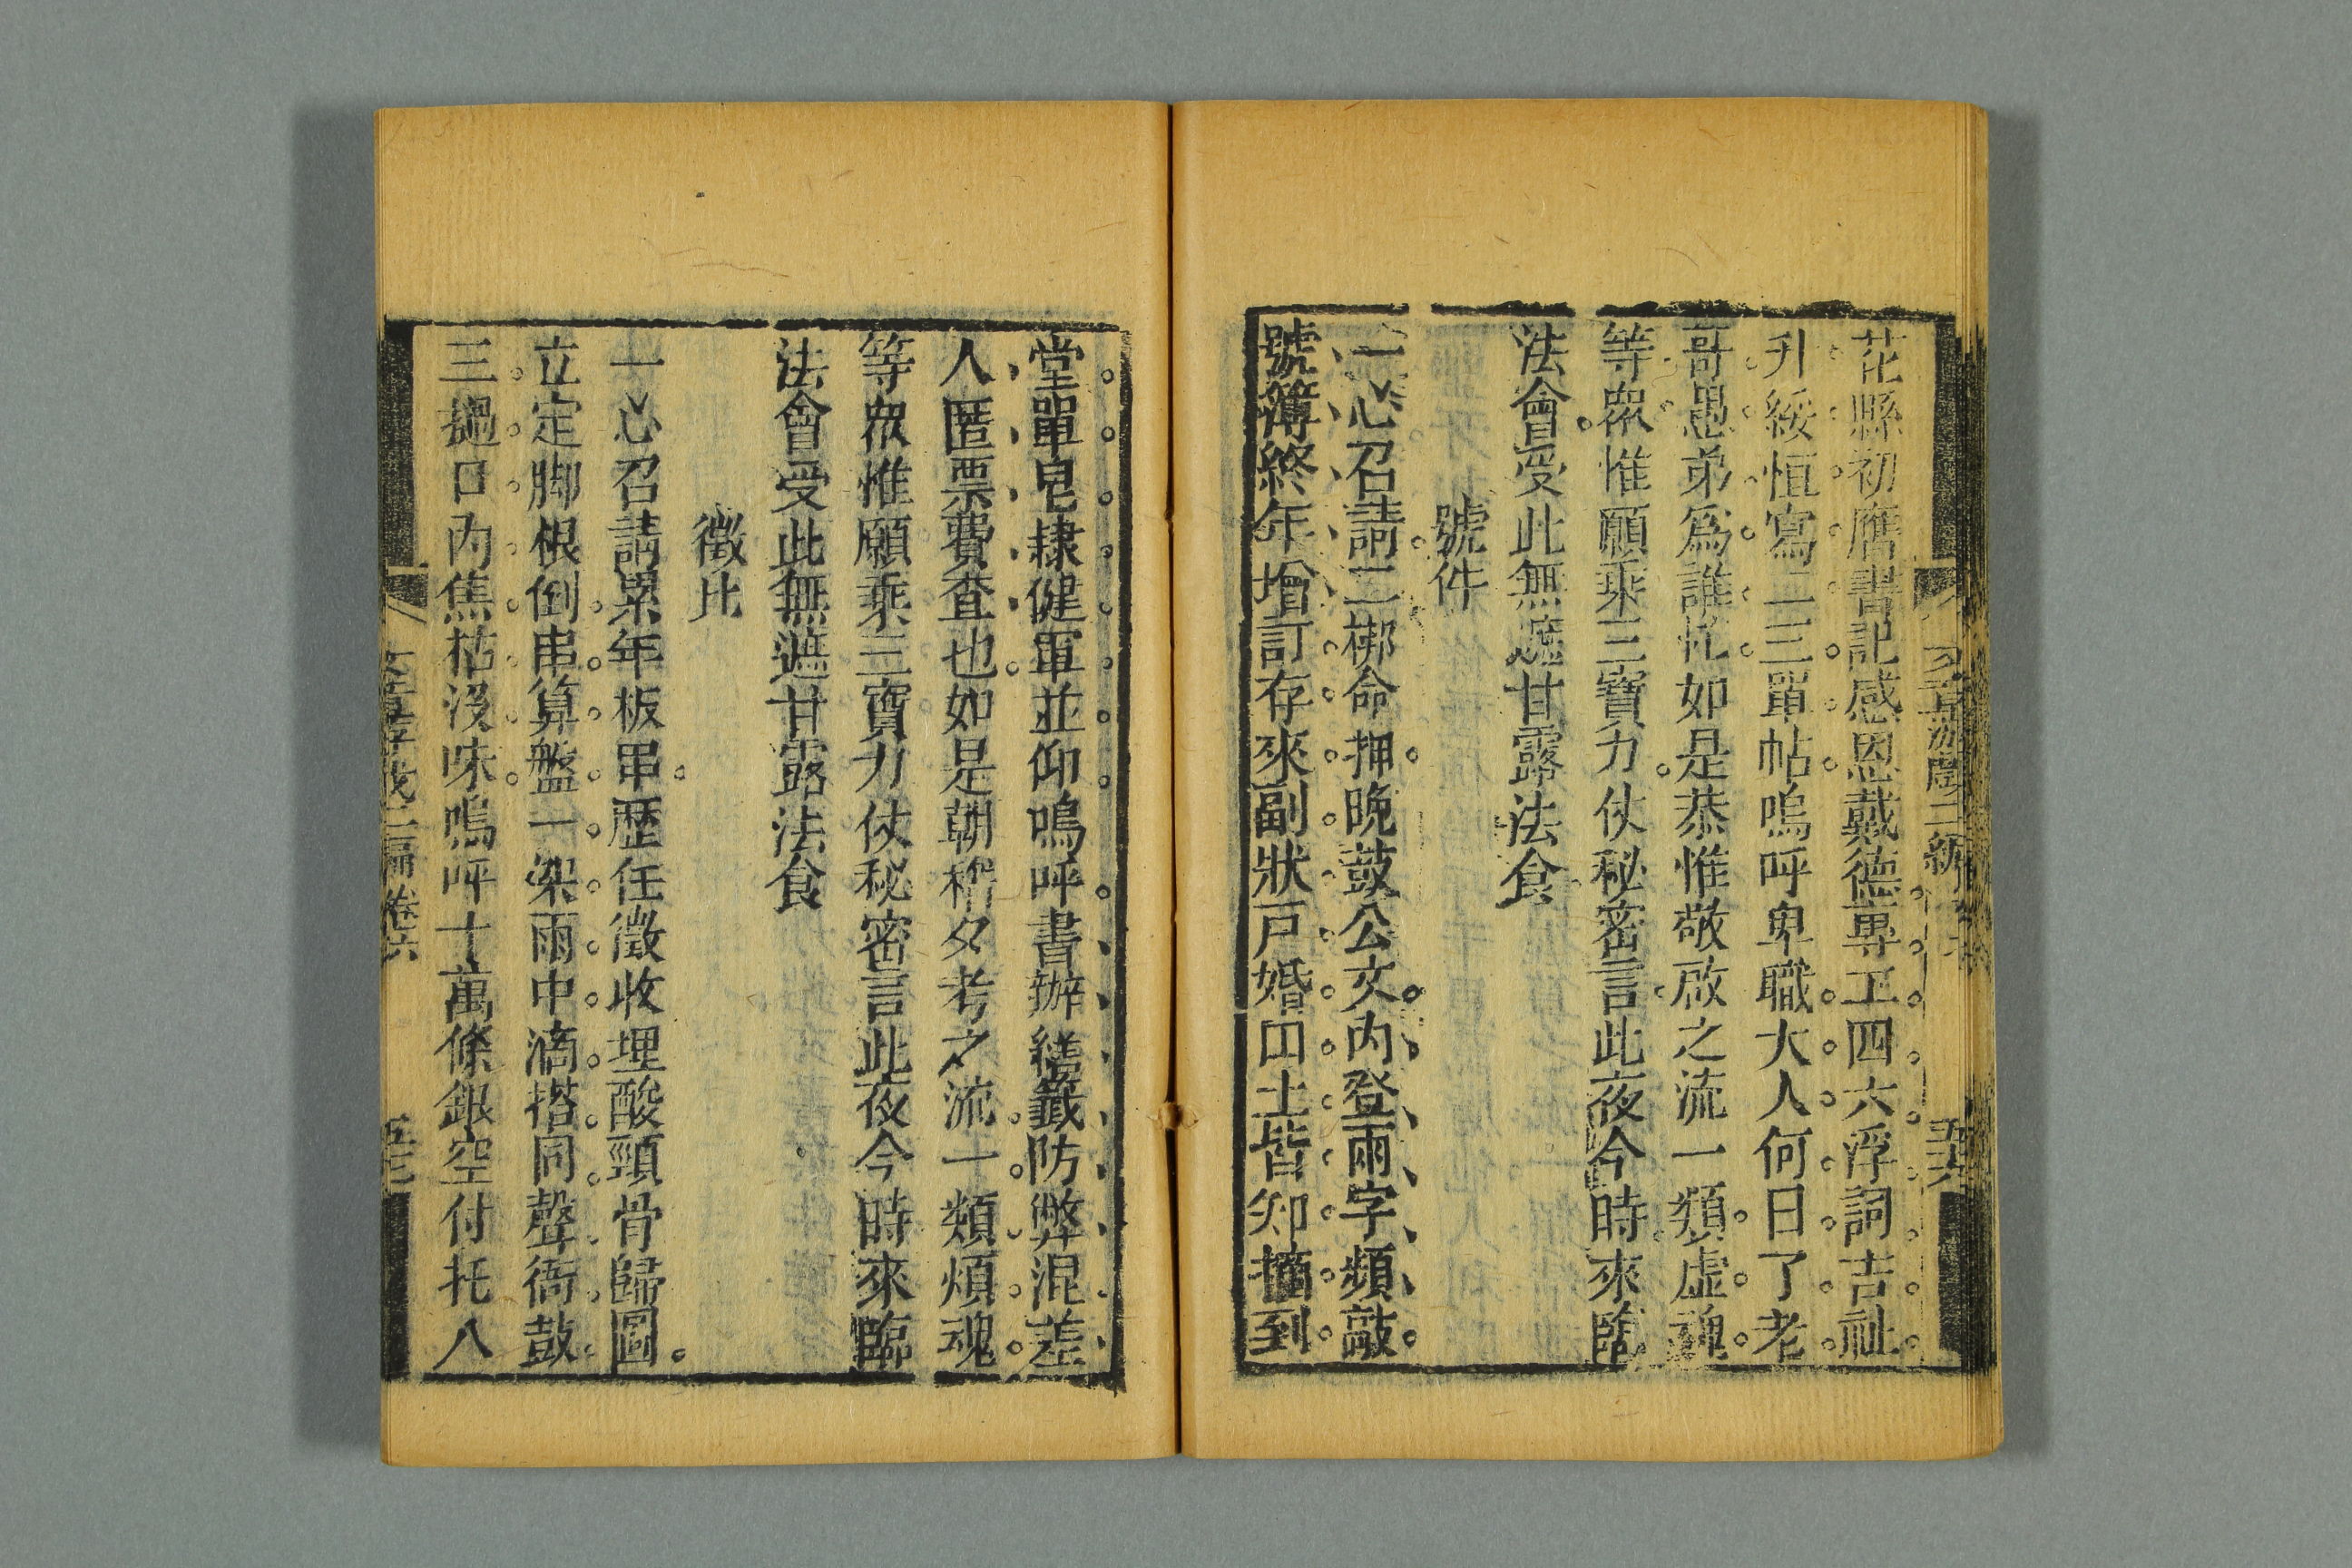 花縣初膺書記感恩戴德專工四六浮詞吉祉
升綏恒寫二三單帖嗚呼卑職大人何日了老
哥愚弟爲誰忙如是恭惟敬啟之流一類虛魂
等衆惟願乘三寶力仗秘密言此夜今時來臨
法會受此無遮甘露法食
號件
一心召請二梆命押晚鼓公文内登兩字頻敲
號簿終年增訂存來副狀戸婚田土皆卸摘到
堂單皂隸健軍並仰嗚呼書辦繕籤防弊混差
人匿票費查也如是朝稽夕考之流一類煩魂
等衆惟願乘三寶力仗秘密言此夜今時來臨
法會受此無遮甘露法食
徵比
一心召請累年板串歷任徵收埋酸頸骨歸圖
立定脚根倒串算盤一架雨中滴搭同聲衙鼓
三撾口内焦枯沒味嗚呼十萬條銀空付托八
文章游戲二編卷六
五七